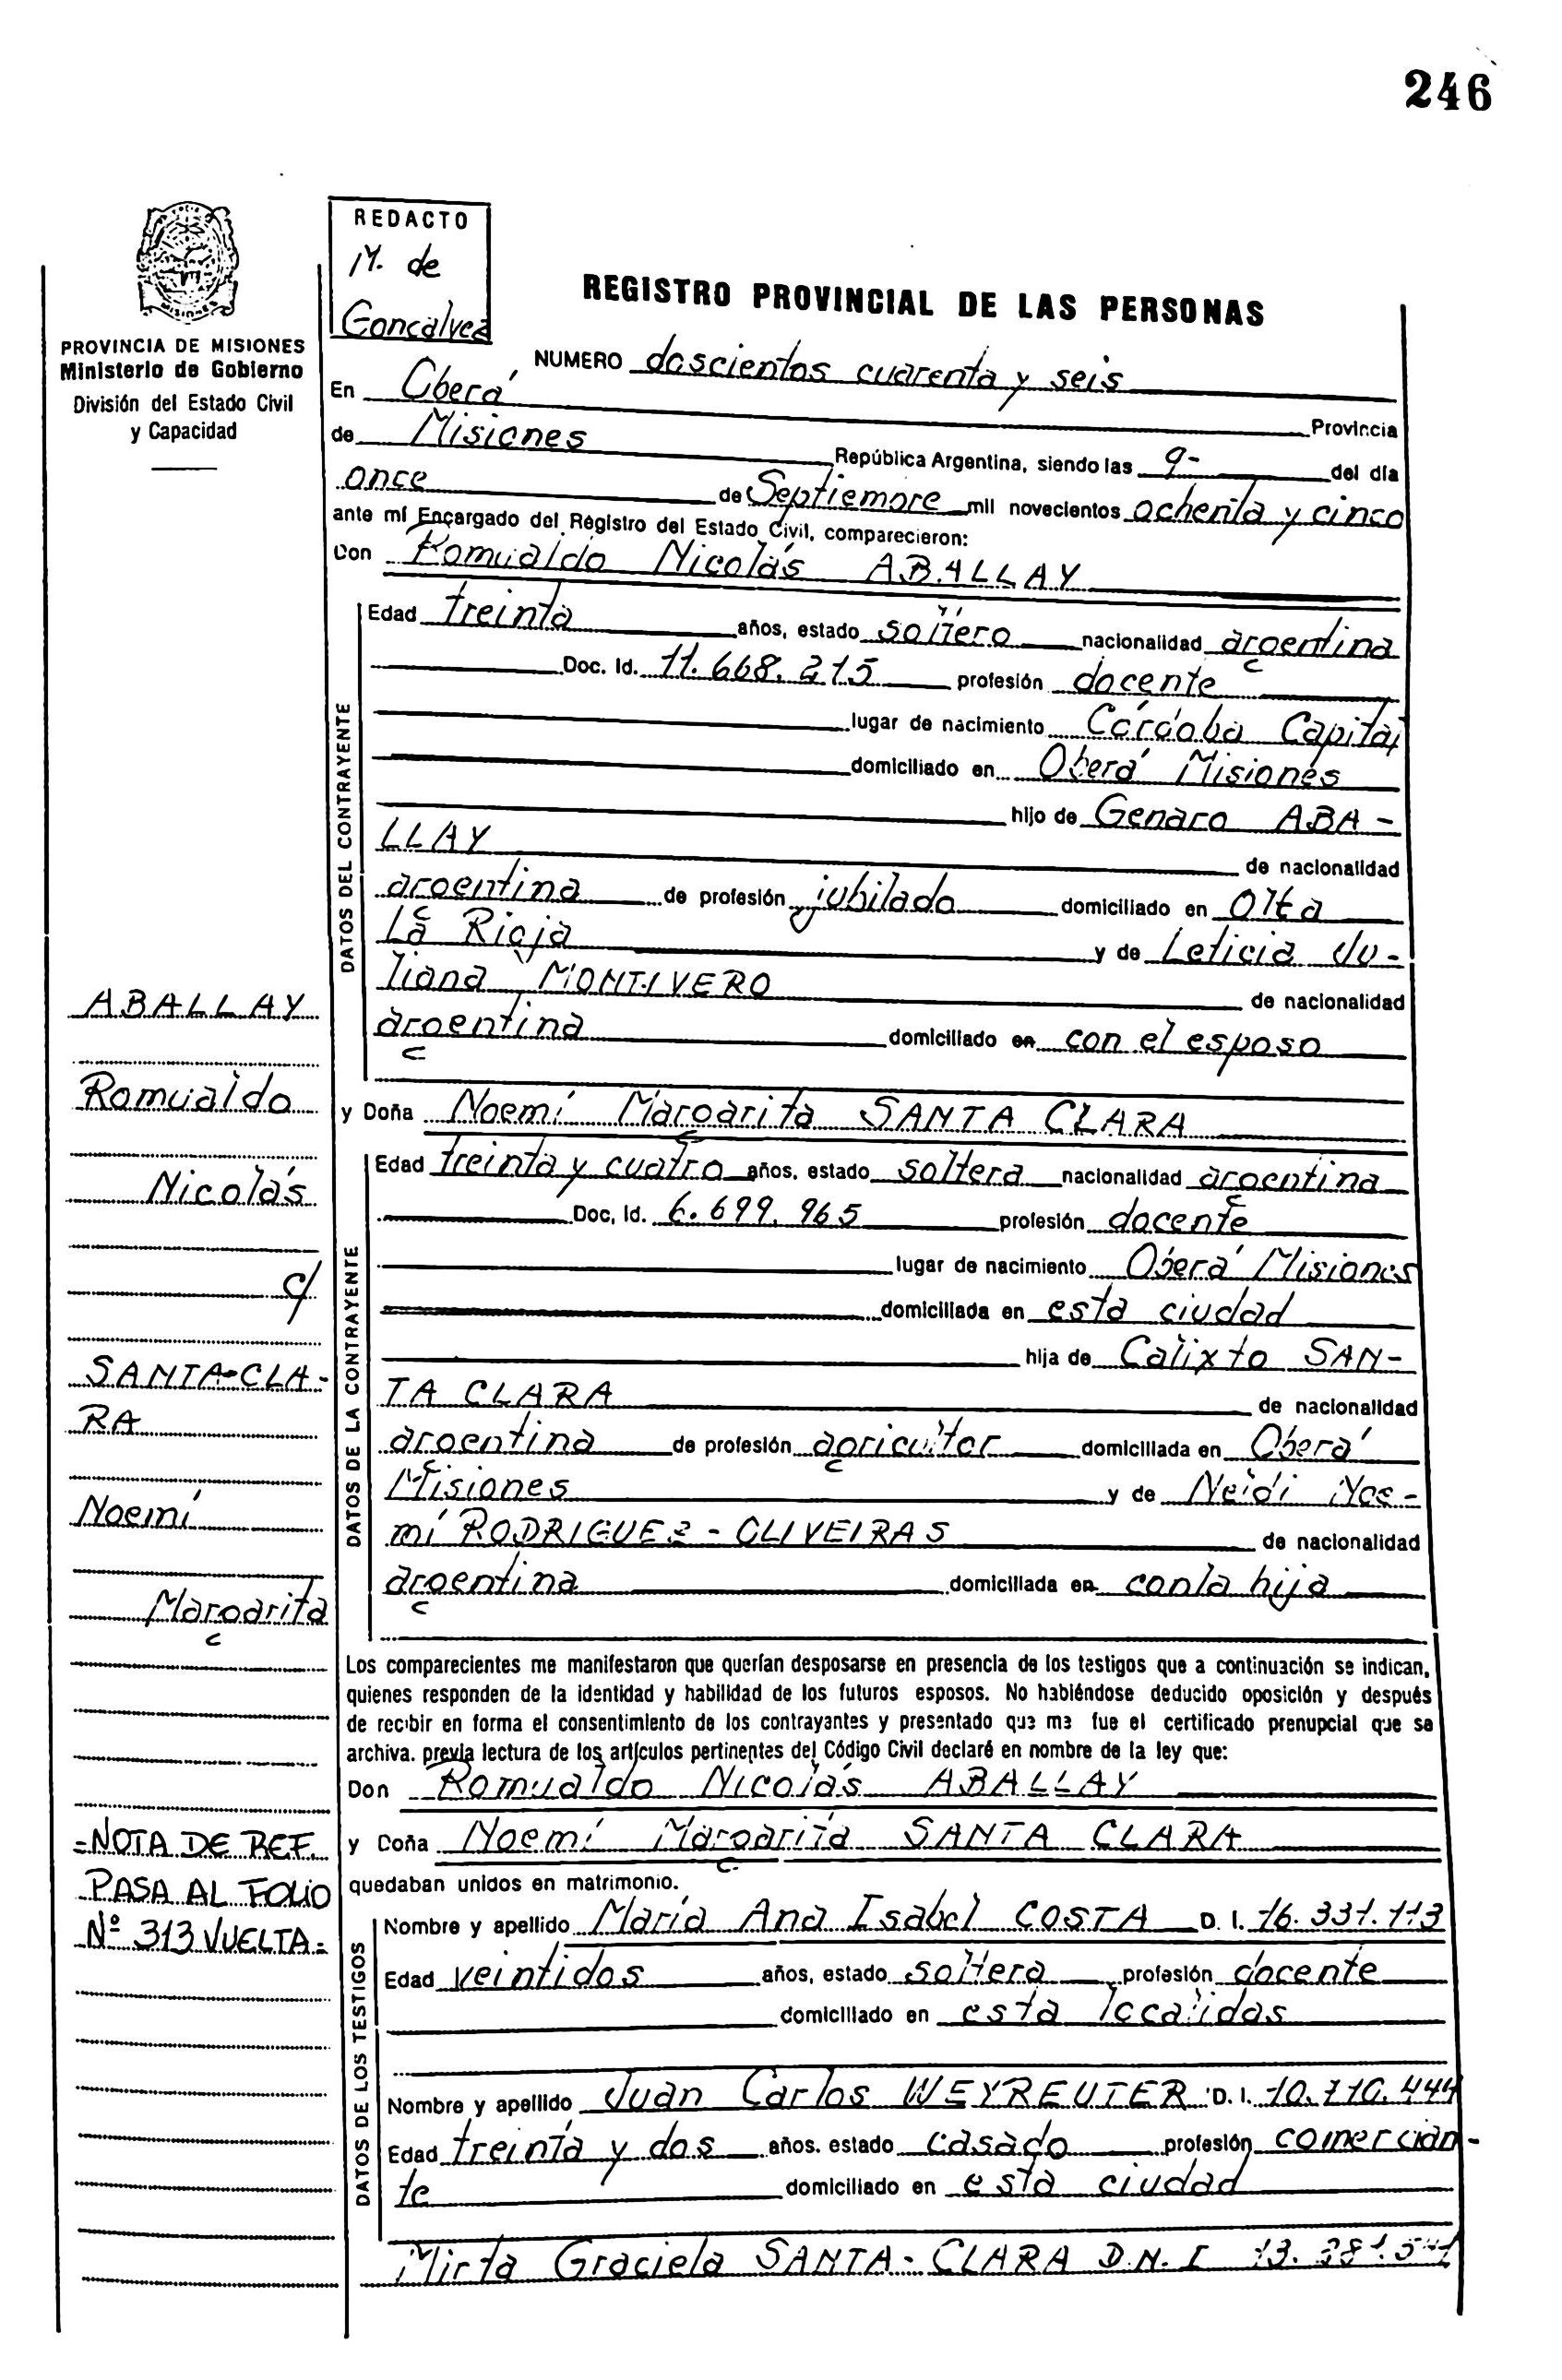 246
REDACTO
M. de
Goncalvez
PROVINCIA DE MISIONES
Ministerio de Gobierno
División del Estado Civil
y Capacidad
REGISTRO PROVINCIAL DE LAS PERSONAS
NUMERO doscientos cuarenta y seis
En Oberá Provincia
de Misiones República Argentina, siendo las 9- del día
once de Septiembre mil novecientos ochenta y cinco
ante mí Encargado del Registro del Estado Civil, comparecieron:
Don Romualdo Nicolás ABALLAY
DATOS DEL CONTRAYENTE
Edad treinta años, estado soltero nacionalidad argentina
Doc. Id. 11.668.215 profesión docente
lugar de nacimiento Córdoba Capital
domiciliado en Oberá Misiones
hijo de Genaro ABA-
LLAY de nacionalidad
argentina de profesión jubilado domiciliado en Olta
La Rioja y de Leticia Ju-
liana MONTIVERO de nacionalidad
argentina domiciliado en con el esposo
y Doña Noemí Margarita SANTA CLARA
DATOS DE LA CONTRAYENTE
Edad treinta y cuatro años, estado soltera nacionalidad argentina
Doc, Id. 6.699.965 profesión docente
lugar de nacimiento Oberá Misiones
domiciliada en esta ciudad
hija de Calixto SAN-
TA CLARA de nacionalidad
argentina de profesión agricultor domiciliada en Oberá
Misiones y de Neidi Noe-
mí RODRIGUEZ-OLIVEIRAS de nacionalidad
argentina domiciliada en con la hija
Los comparecientes me manifestaron que querían desposarse en presencia de los testigos que a continuación se indican,
quienes responden de la identidad y habilidad de los futuros esposos. No habiéndose deducido oposición y después
de recibir en forma el consentimiento de los contrayantes y presentado que me fue el certificado prenupcial que se
archiva. previa lectura de los artículos pertinentes del Código Civil declaré en nombre de la ley que:
Don Romualdo Nicolás ABALLAY
y Doña Noemí Margarita SANTA CLARA
quedaban unidos en matrimonio.
DATOS DE LOS TESTIGOS
Nombre y apellido María Ana Isabel COSTA D. I. 16.331.113
Edad veintidos años, estado soltera profesión docente
domiciliado en esta localidas
Nombre y apellido Juan Carlos WEYREUTER D. I. 10.710.444
Edad treinta y dos años. estado casado profesión comercian-
te domiciliado en esta ciudad
Mirta Graciela SANTA-CLARA D.N.I
ABALLAY
Romualdo
Nicolás
c/
SANTA-CLA-
RA
Noemí
Margarita
=NOTA DE REF.
PASA AL FOLIO
Nº 313 VUELTA=